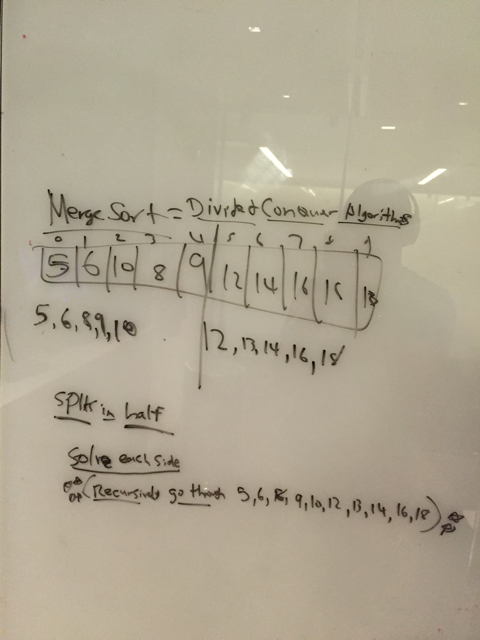 Merge Sort = Divide & Conquer Algorithms
0 1 2 3 4 5 6 7 8 9
5 6 10 8 9 12 14 16 18 13
5, 6, 8, 9, 10
12, 13, 14, 16, 18
Split in half
Solve each side
(Recursively go through 5, 6, 8, 9, 10, 12, 13, 14, 16, 18)